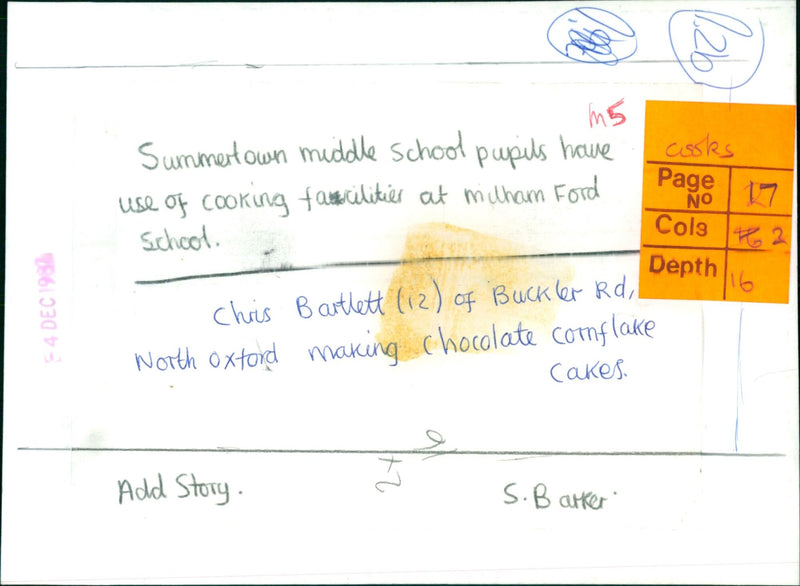 1.26
m5
Summertown middle school pupils have
use of cooking facilities at milham Ford
School.
cooks
Page No 17
Cols 2
Depth 16
Chris Bartlett (12) of Buckler Rd,
North Oxford making chocolate cornflake
cakes.
-4 DEC 198
Add Story.
S. Barker.